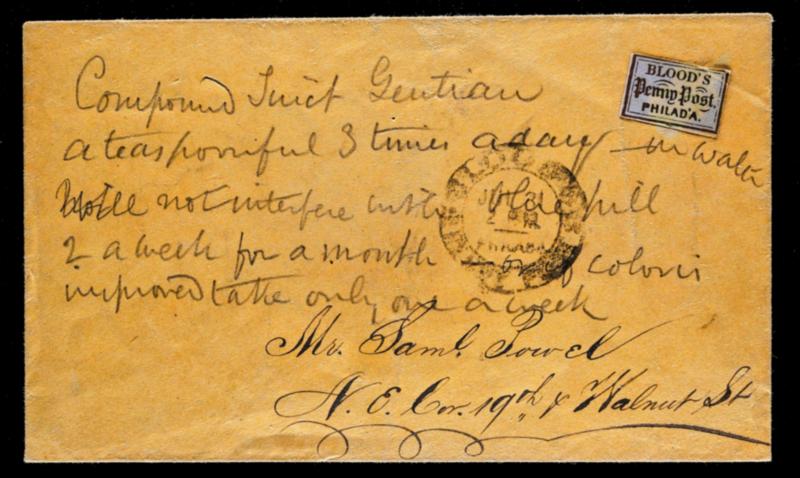 BLOOD'S
Penny Post.
PHILAD'A.
Compound Tinct Gentian
a teaspoonful 3 times a day — in water
Will not interfere with blue pill
2 a week for a month — or if color is
improved take only one a week
Mr. Saml. Powel
N. E. Cor. 19th & Walnut St